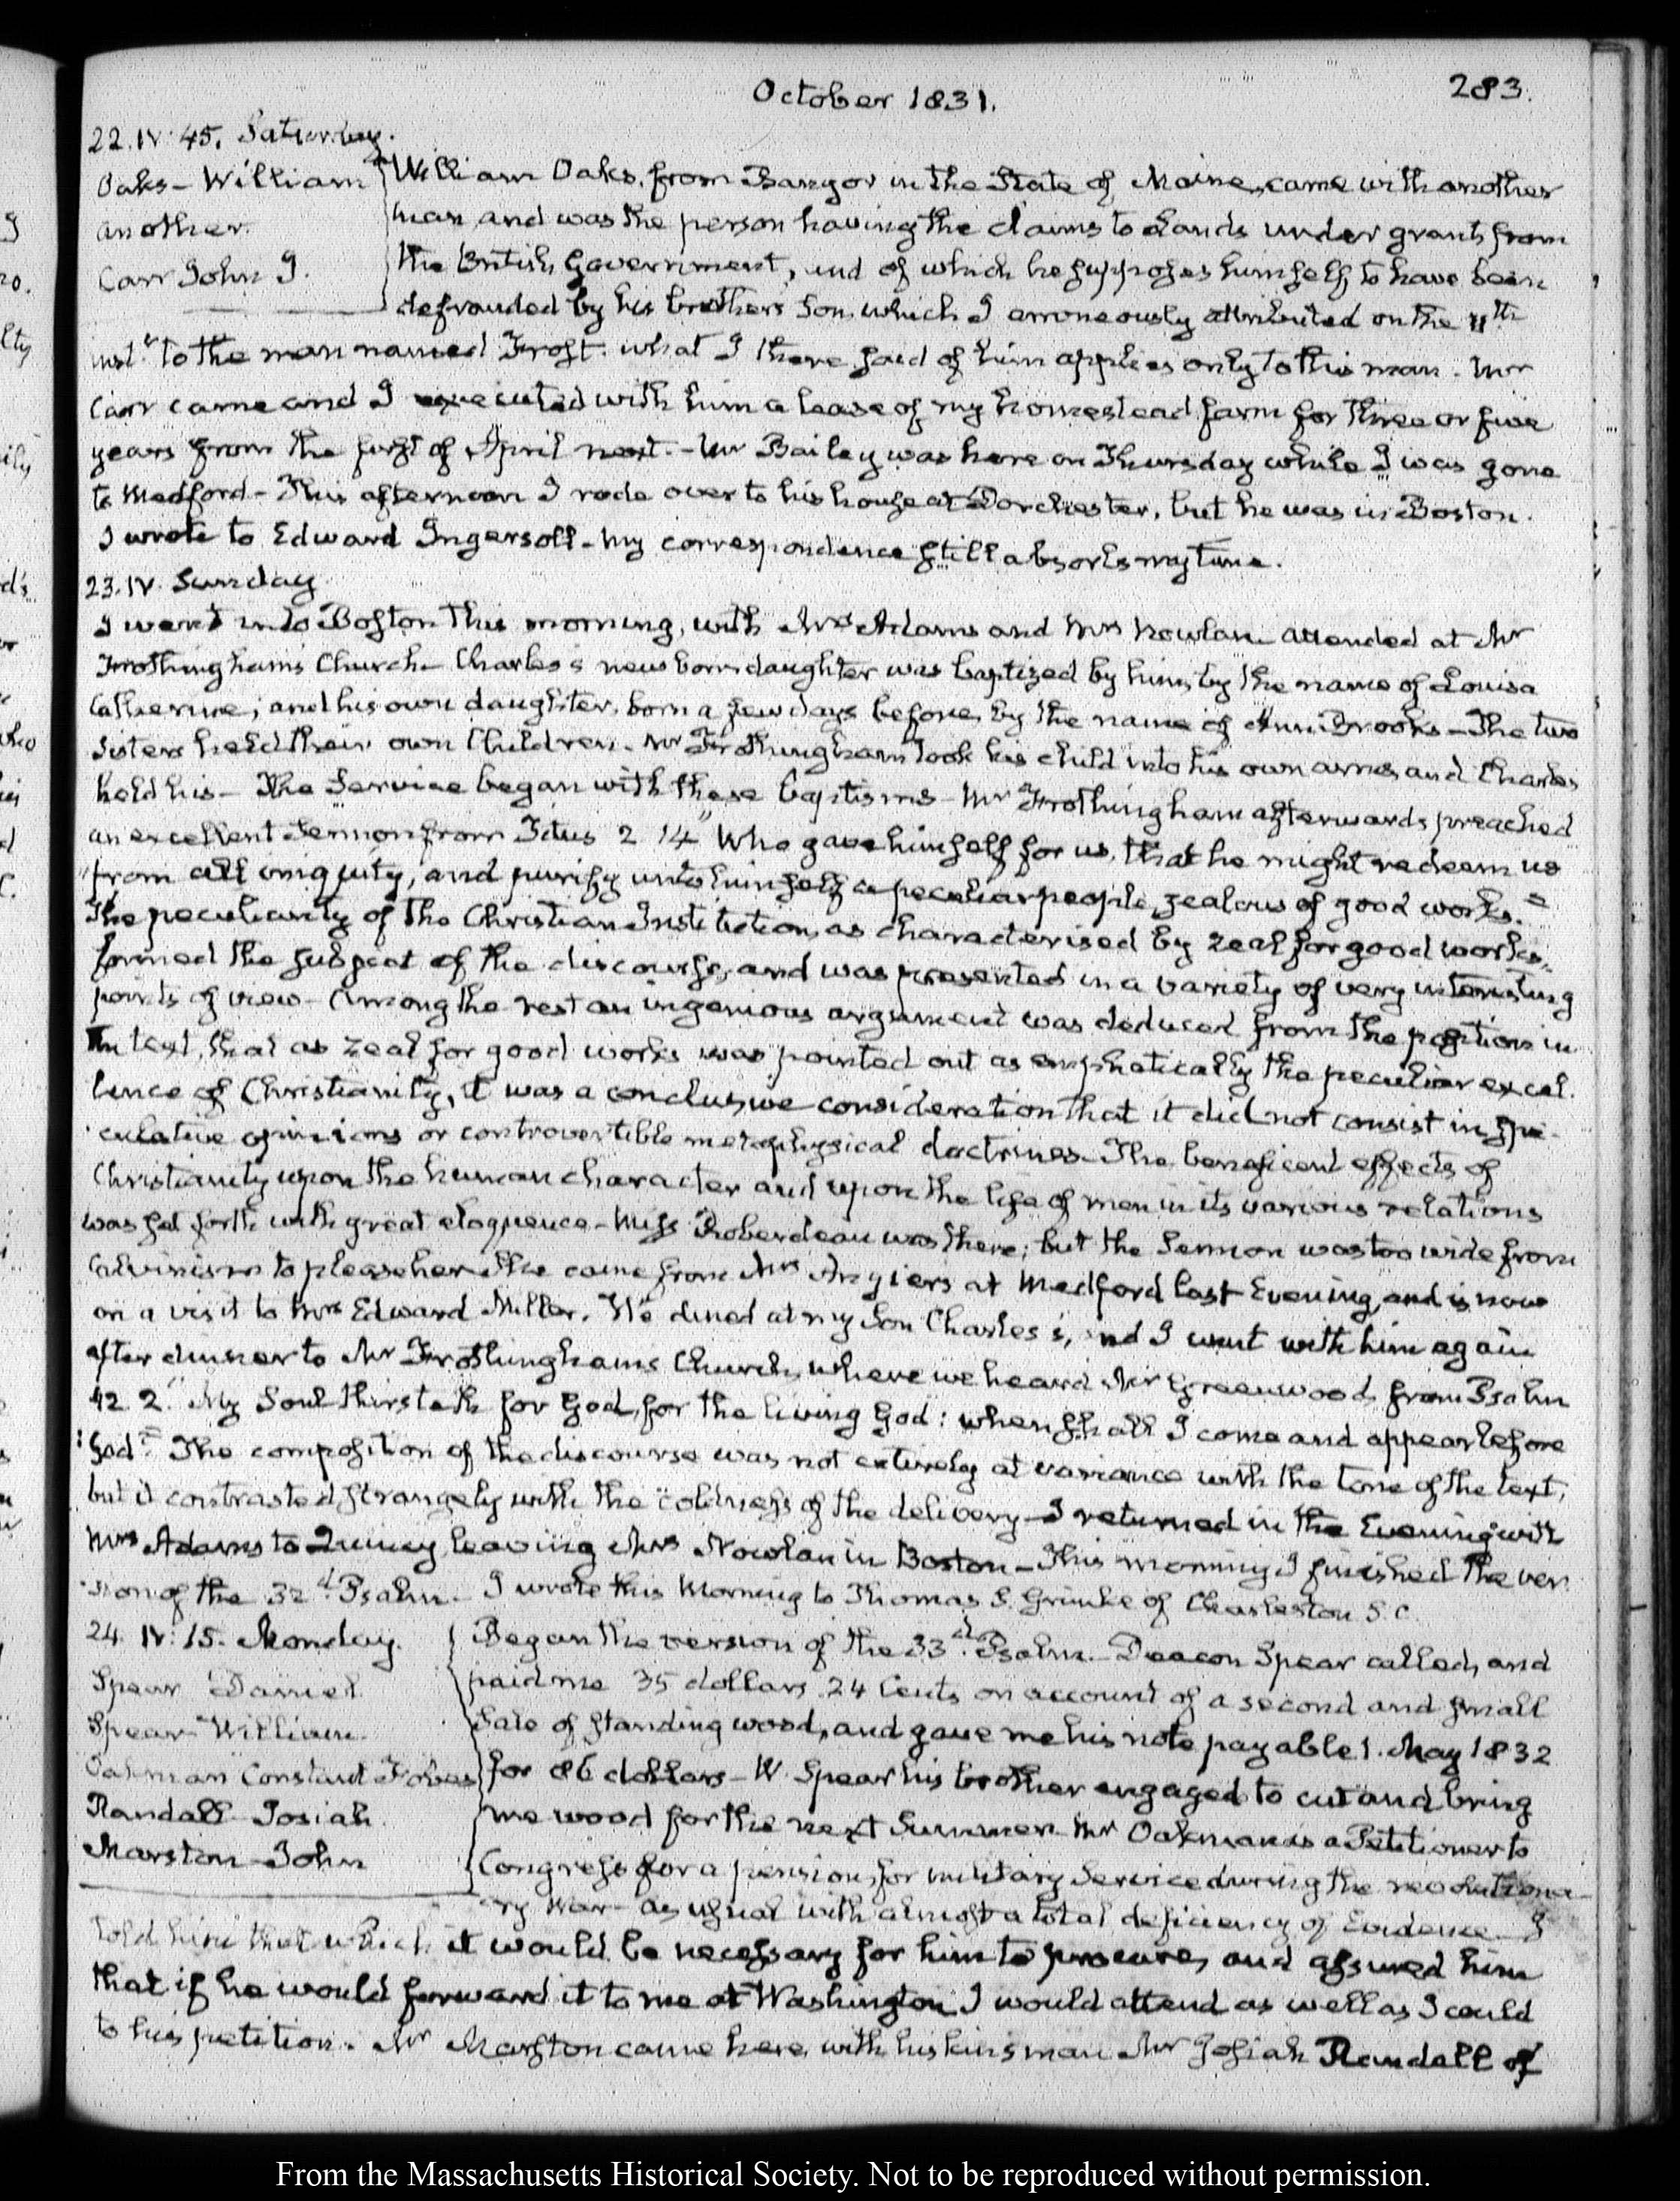 October 1831.
283.
22. IV. 45. Saturday.
Oaks - William
another.
Carr John J.
William Oaks, from Bangor in the State of Maine, came with another
man, and was the person having the claims to Lands under grants from
the British Government, and of which he supposes himself to have been
defrauded by his brother's Son, which I erroneously attributed on the 11th
inst. to the man named Frost. what I there said of him applies only to this man. Mr
Carr came and I executed with him a lease of my homestead farm for three or five
years from the first of April next. - Mr Bailey was here on Thursday while I was gone
to Medford - This afternoon I rode over to his house at Dorchester, but he was in Boston.
I wrote to Edward Ingersoll - My correspondence still absorbs my time.
23. IV. Sunday
I went into Boston this morning, with Mrs Adams and Mrs Nowlan attended at Mr
Frothingham's Church - Charles's new born daughter was baptized by him, by the name of Louisa
Catherine; and his own daughter, born a few days before, by the name of Ann Brooks - The two
Sisters held their own Children - Mr Frothingham took his child into his own arms, and Charles
held his - The Service began with these baptisms - Mr Frothingham afterwards preached
an excellent Sermon from Titus 2 14 "Who gave himself for us, that he might redeem us
"from all iniquity, and purify unto himself a peculiar people, zealous of good works."
The peculiarity of the Christian Institution, as characterised by zeal for good works,
formed the subject of the discourse, and was presented in a variety of very interesting
points of view - Among the rest an ingenious argument was deduced from the position in
the text, that as zeal for good works was pointed out as emphatically the peculiar excel-
lence of Christianity, it was a conclusive consideration that it did not consist in spe-
culative opinions or controvertible metaphysical doctrines - The beneficent effects of
Christianity upon the human character and upon the life of man in its various relations
was set forth with great eloquence - Miss Roberdeau was there; but the Sermon was too wide from
Calvinism to please her. She came from Mrs Angier's at Medford last Evening, and is now
on a visit to Mrs Edward Miller. We dined at my Son Charles's, and I went with him again
after dinner to Mr Frothingham's Church, where we heard Mr Greenwood, from Psalm
42. 2. "My Soul thirsteth for God, for the living God: when shall I come and appear before
God?" The composition of the discourse was not entirely at variance with the tone of the text;
but it contrasted strangely with the coldness of the delivery - I returned in the Evening with
Mrs Adams to Quincy, leaving Mrs Nowlan in Boston - This morning I finished the ver-
sion of the 32d Psalm - I wrote this Morning to Thomas S. Grimke of Charleston S.C.
24. IV: 15. Monday.
Spear Daniel
Spear William.
Oakman Constant Fobes
Randall Josiah.
Marston John
Began the version of the 33d Psalm. - Deacon Spear called, and
paid me 35 dollars 24 Cents on account of a second and small
Sale of standing wood, and gave me his note payable 1. May 1832
for 86 dollars - W. Spear his brother engaged to cut and bring
me wood for the next Summer - Mr Oakman is a Petitioner to
Congress for a pension, for military Service during the revolutiona-
ry War - as usual with almost a total deficiency of Evidence - I
told him that which it would be necessary for him to procure, and assured him
that if he would forward it to me at Washington, I would attend as well as I could
to his petition. Mr Marston came here, with his kinsman Mr Josiah Randall of
From the Massachusetts Historical Society. Not to be reproduced without permission.